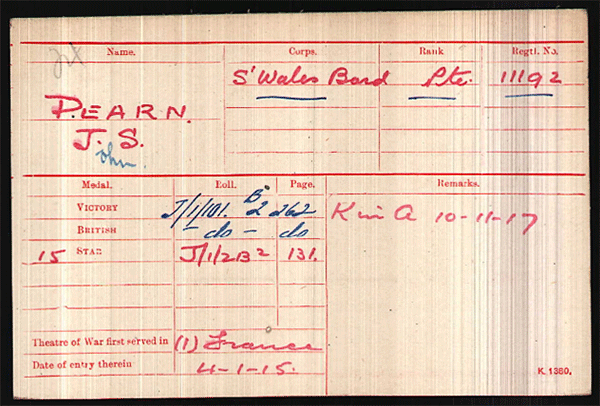 Name. Corps. Rank Regtl. No.
S' Wales Bord Pte. 11192
PEARN.
J. S.
ohn.
Medal. Roll. Page. Remarks.
VICTORY J/1/101. B 2 262 K in A 10-11-17
BRITISH - do - do
15 STAR J/1/2B2 131.
Theatre of War first served in (1) France
Date of entry therein 4-1-15.
K. 1380.